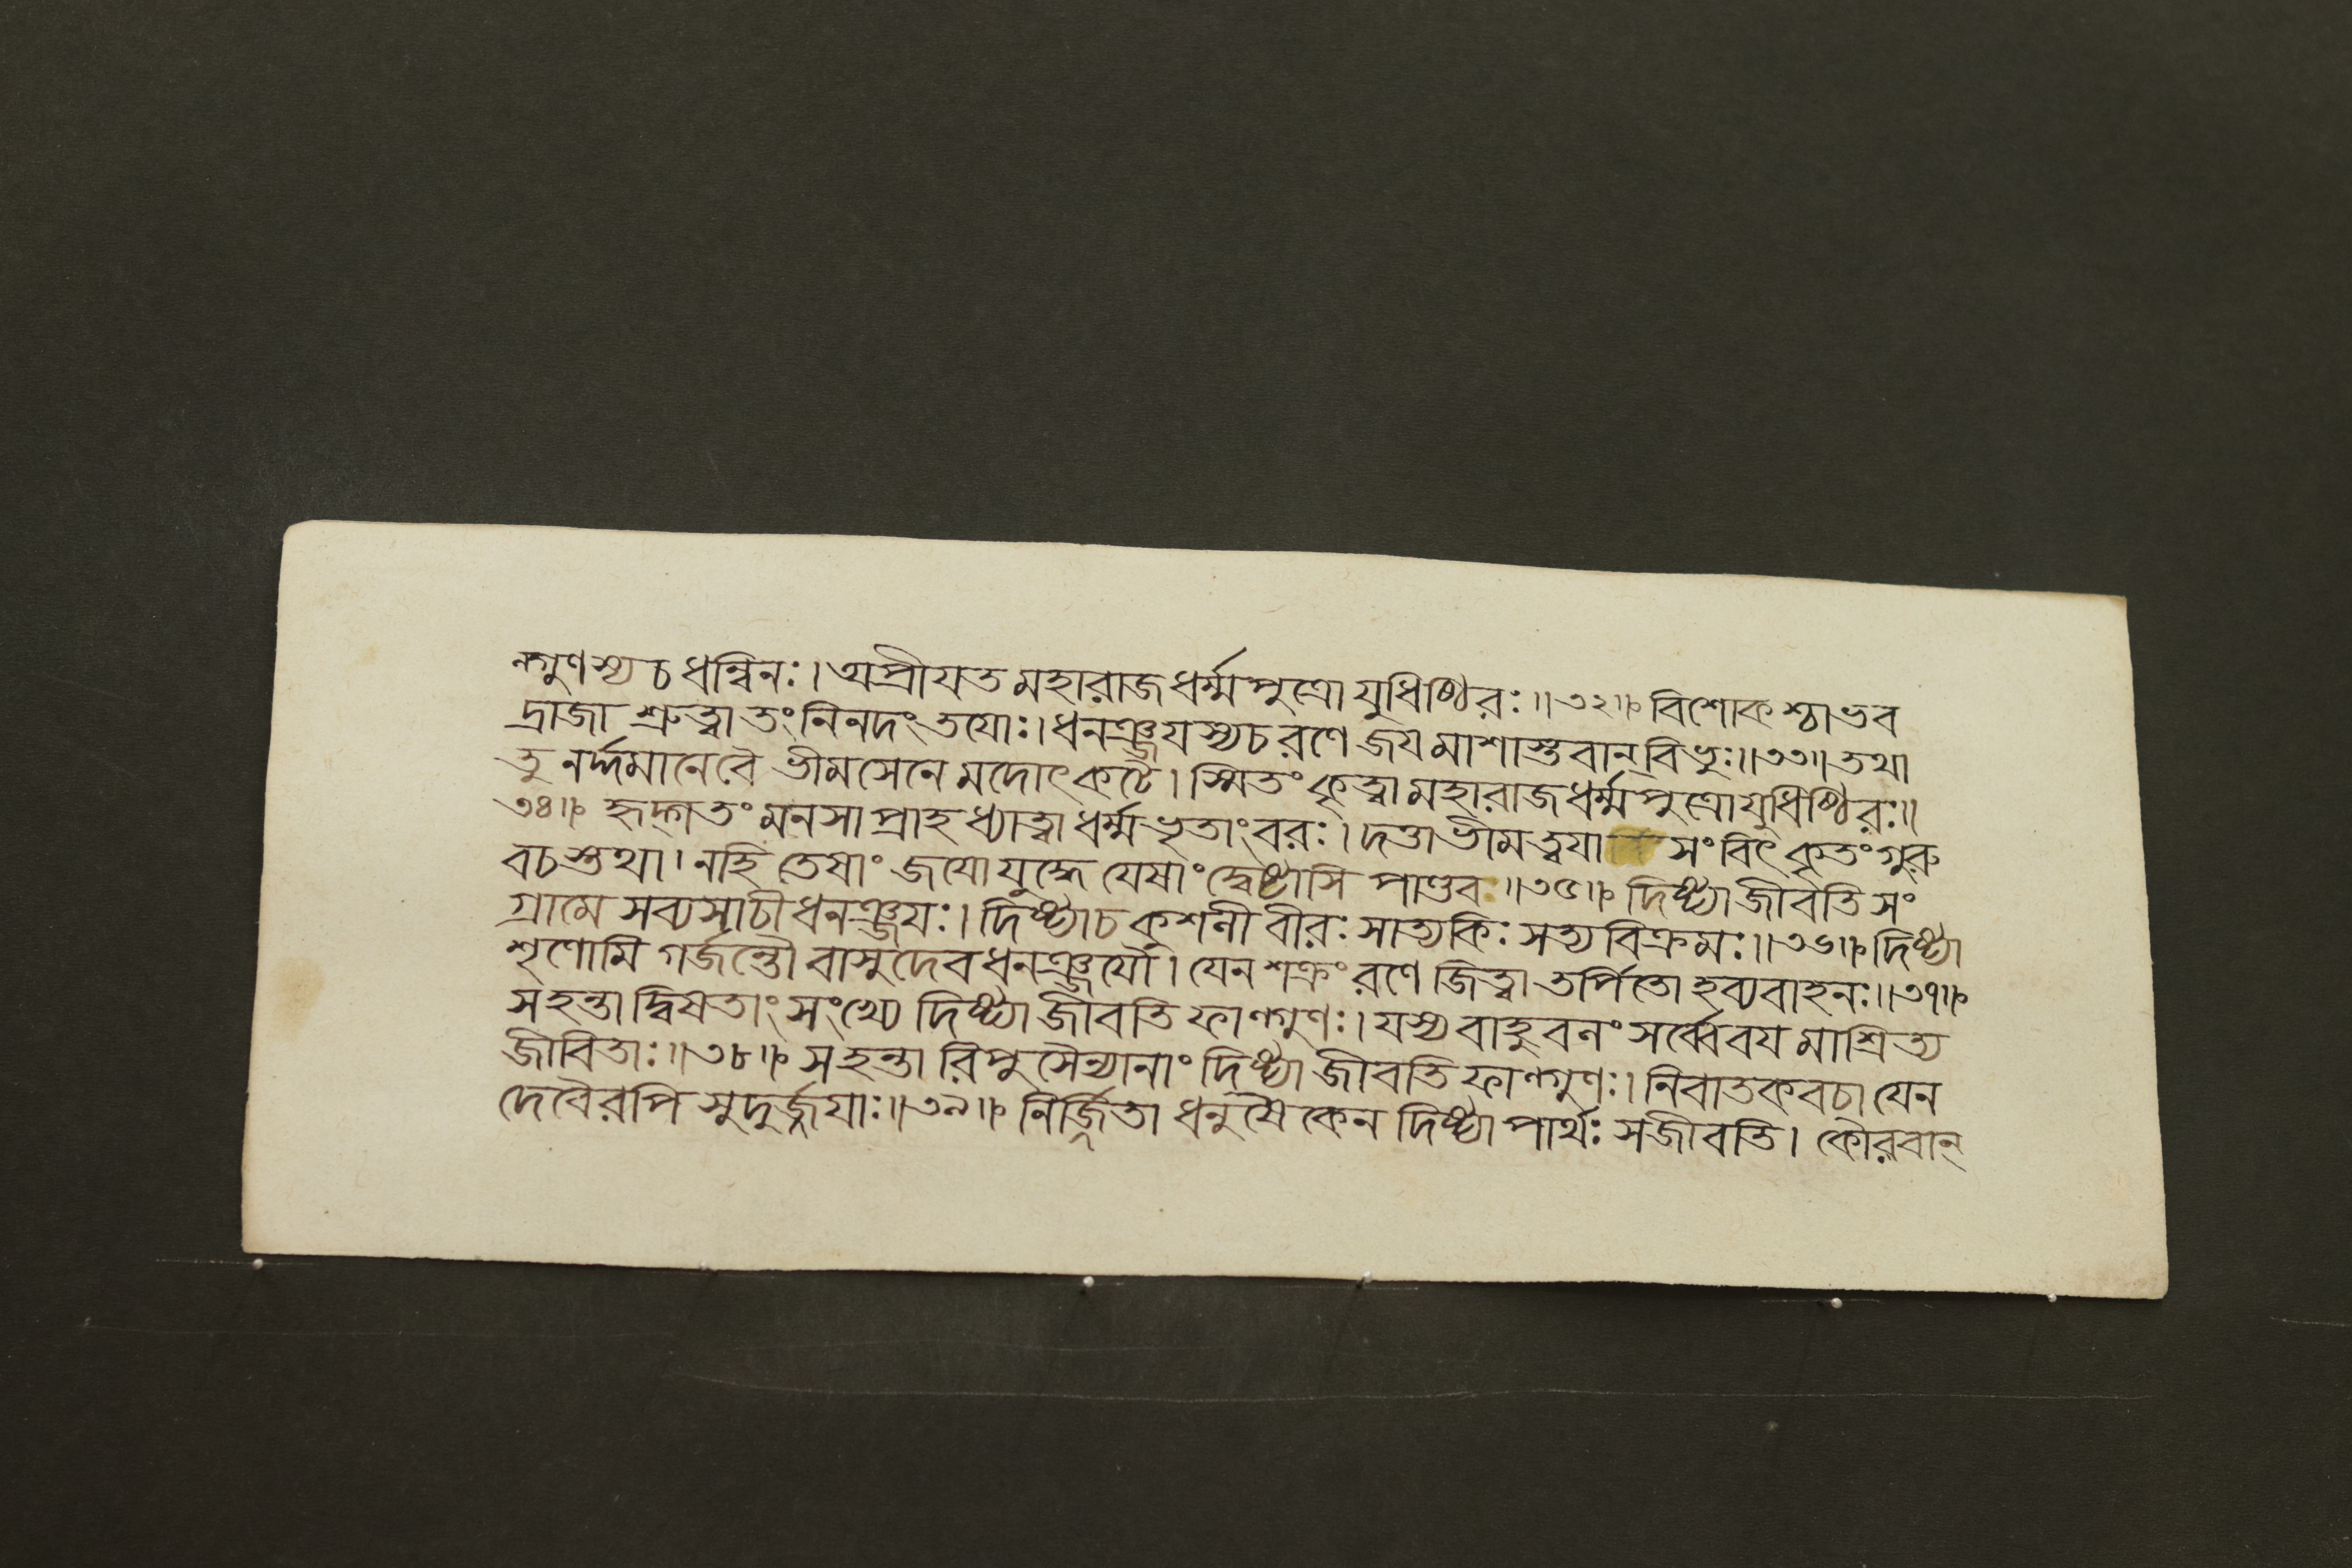 ল্গুণস্য চ ধন্বিনঃ। অপ্রীযত মহারাজ ধর্ম্মপুত্রো যুধিষ্ঠিরঃ॥৩২॥ বিশোকশ্চাভব
দ্রাজা শ্রুত্বা তং নিনদং তযোঃ। ধনঞ্জযস্যচ রণে জযমাশাস্তবান্ বিভুঃ॥৩৩॥ তথা
তু নর্দ্দমানেবৈ ভীমসেনে মদোৎকটে। স্মিতং কৃত্বা মহারাজ ধর্ম্মপুত্রো যুধিষ্ঠিরঃ॥
৩৪॥ হৃদ্গতং মনসা প্রাহ ধ্যাত্বা ধর্ম্মভৃতাংবরঃ। দত্তা ভীম ত্বযা সংবিৎ কৃতং গুরু
বচস্তথা। নহি তেষাং জযো যুদ্ধে যেষাং দ্বেষ্টাসি পাণ্ডব॥৩৫॥ দিষ্ট্যা জীবতি সং
গ্রামে সব্যসাচী ধনঞ্জযঃ। দিষ্ট্যাচ কুশলী বীরঃ সাত্যকিঃ সত্যবিক্রমঃ॥৩৬॥ দিষ্ট্যা
শৃণোমি গর্জন্তৌ বাসুদেবধনঞ্জযৌ। যেন শক্রং রণে জিত্বা তর্পিতো হব্যবাহনঃ॥৩৭॥
স হন্তা দ্বিষতাং সংখ্যে দিষ্ট্যা জীবতি ফাল্গুণঃ। যস্য বাহুবলং সর্ব্বে বযমাশ্রিত্য
জীবিতাঃ॥৩৮॥ স হন্তা রিপুসৈন্যানাং দিষ্ট্যা জীবতি ফাল্গুণঃ। নিবাতকবচা যেন
দেবৈরপি সুদুর্জ্জযাঃ॥৩৯॥ নির্জ্জিতা ধনুষৈকেন দিষ্ট্যা পার্থঃ সজীবতি। কৌরবান্